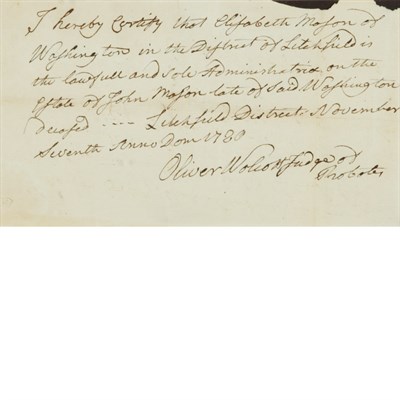 I hereby Certify that Elizabeth Mason of
Washington in the District of Litchfield is
the lawfull and Sole Administratrix on the
Estate of John Mason late of Said Washington
deceased ---- Litchfield District November
Seventh Anno Dom 1780
Oliver Wolcott Judge of
Probates